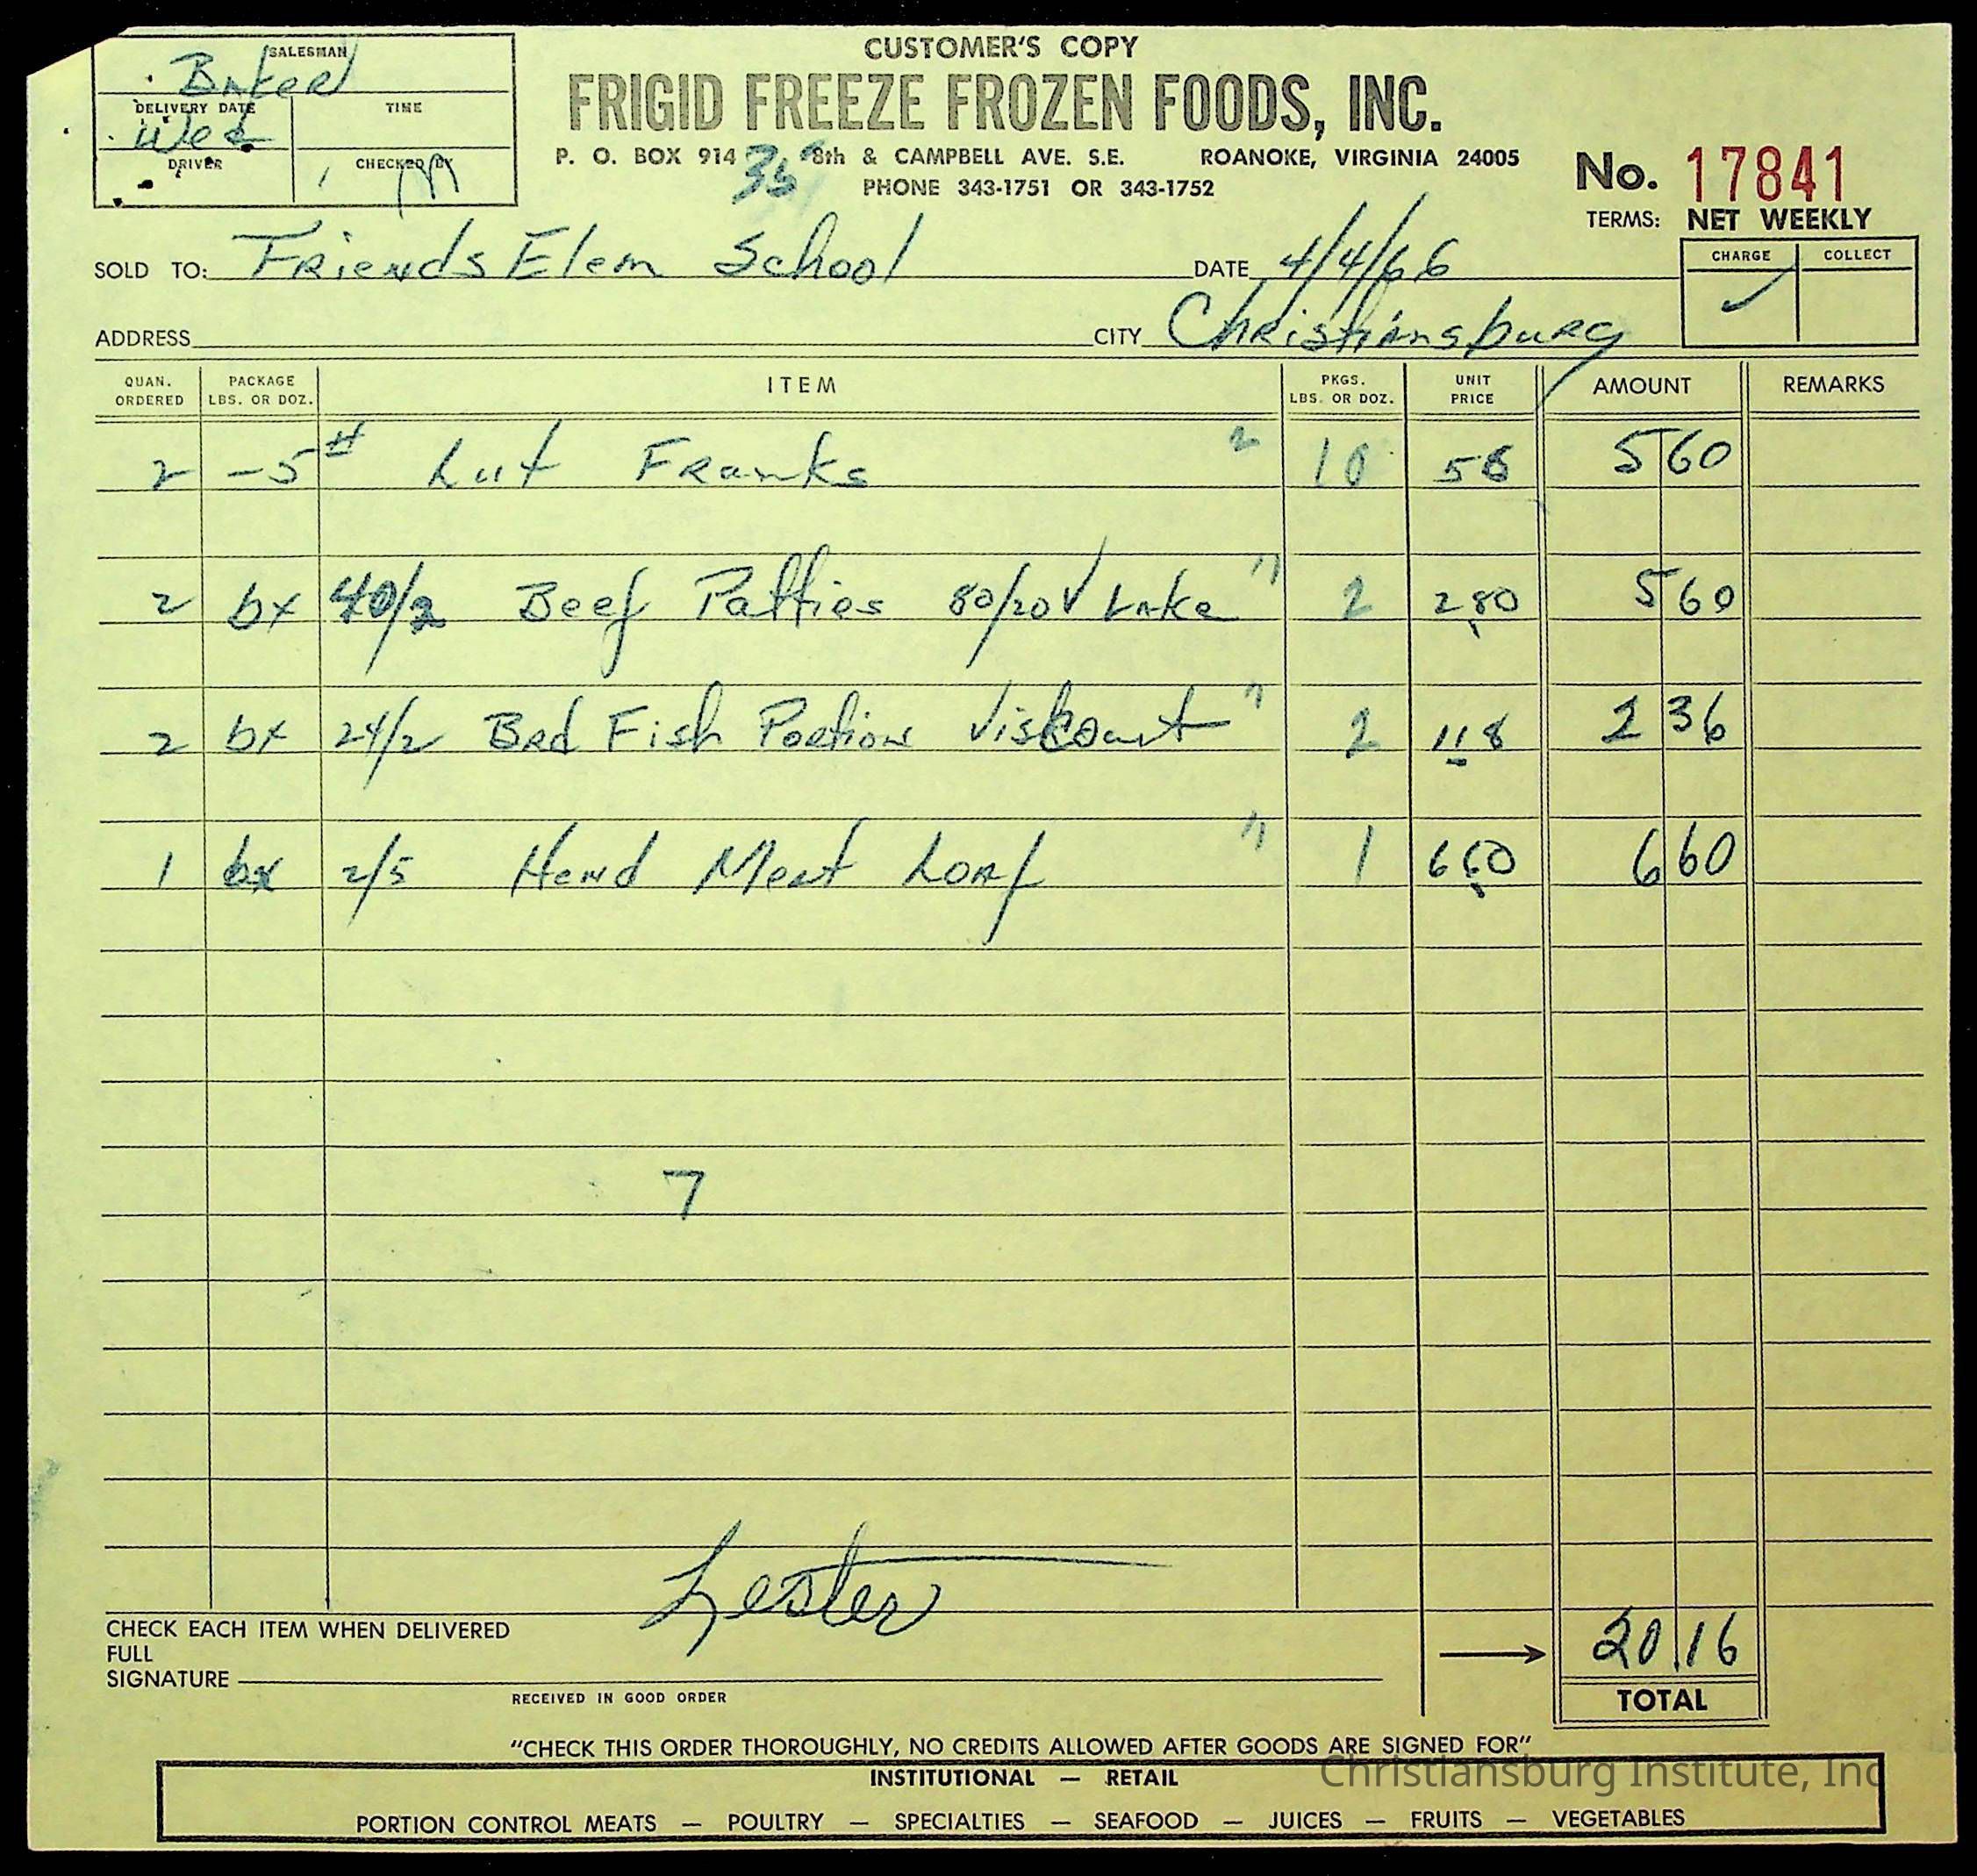 CUSTOMER'S COPY
FRIGID FREEZE FROZEN FOODS, INC.
P. O. BOX 914 8th & CAMPBELL AVE. S.E. ROANOKE, VIRGINIA 24005
35
PHONE 343-1751 OR 343-1752
SALESMAN
DELIVERY DATE TIME
Wed
DRIVER CHECKED BY
No. 17841
TERMS: NET WEEKLY
CHARGE COLLECT
✓
SOLD TO: Friends Elem School DATE 4/4/66
ADDRESS CITY Christiansburg
QUAN. ORDERED PACKAGE LBS. OR DOZ. ITEM PKGS. LBS. OR DOZ. UNIT PRICE AMOUNT REMARKS
2 -5# Franks 2 10 56 5 60
2 bx 40/2 Beef Patties 80/20 V Lake " 2 2 80 5 60
2 bx 24/2 Brd Fish Portion Viscount " 2 1 18 2 36
1 bx 2/5 Meat Loaf " 1 6 60 6 60
7
Lester
CHECK EACH ITEM WHEN DELIVERED
FULL
SIGNATURE
RECEIVED IN GOOD ORDER
20.16
TOTAL
"CHECK THIS ORDER THOROUGHLY, NO CREDITS ALLOWED AFTER GOODS ARE SIGNED FOR"
INSTITUTIONAL — RETAIL
PORTION CONTROL MEATS — POULTRY — SPECIALTIES — SEAFOOD — JUICES — FRUITS — VEGETABLES
Christiansburg Institute, Inc